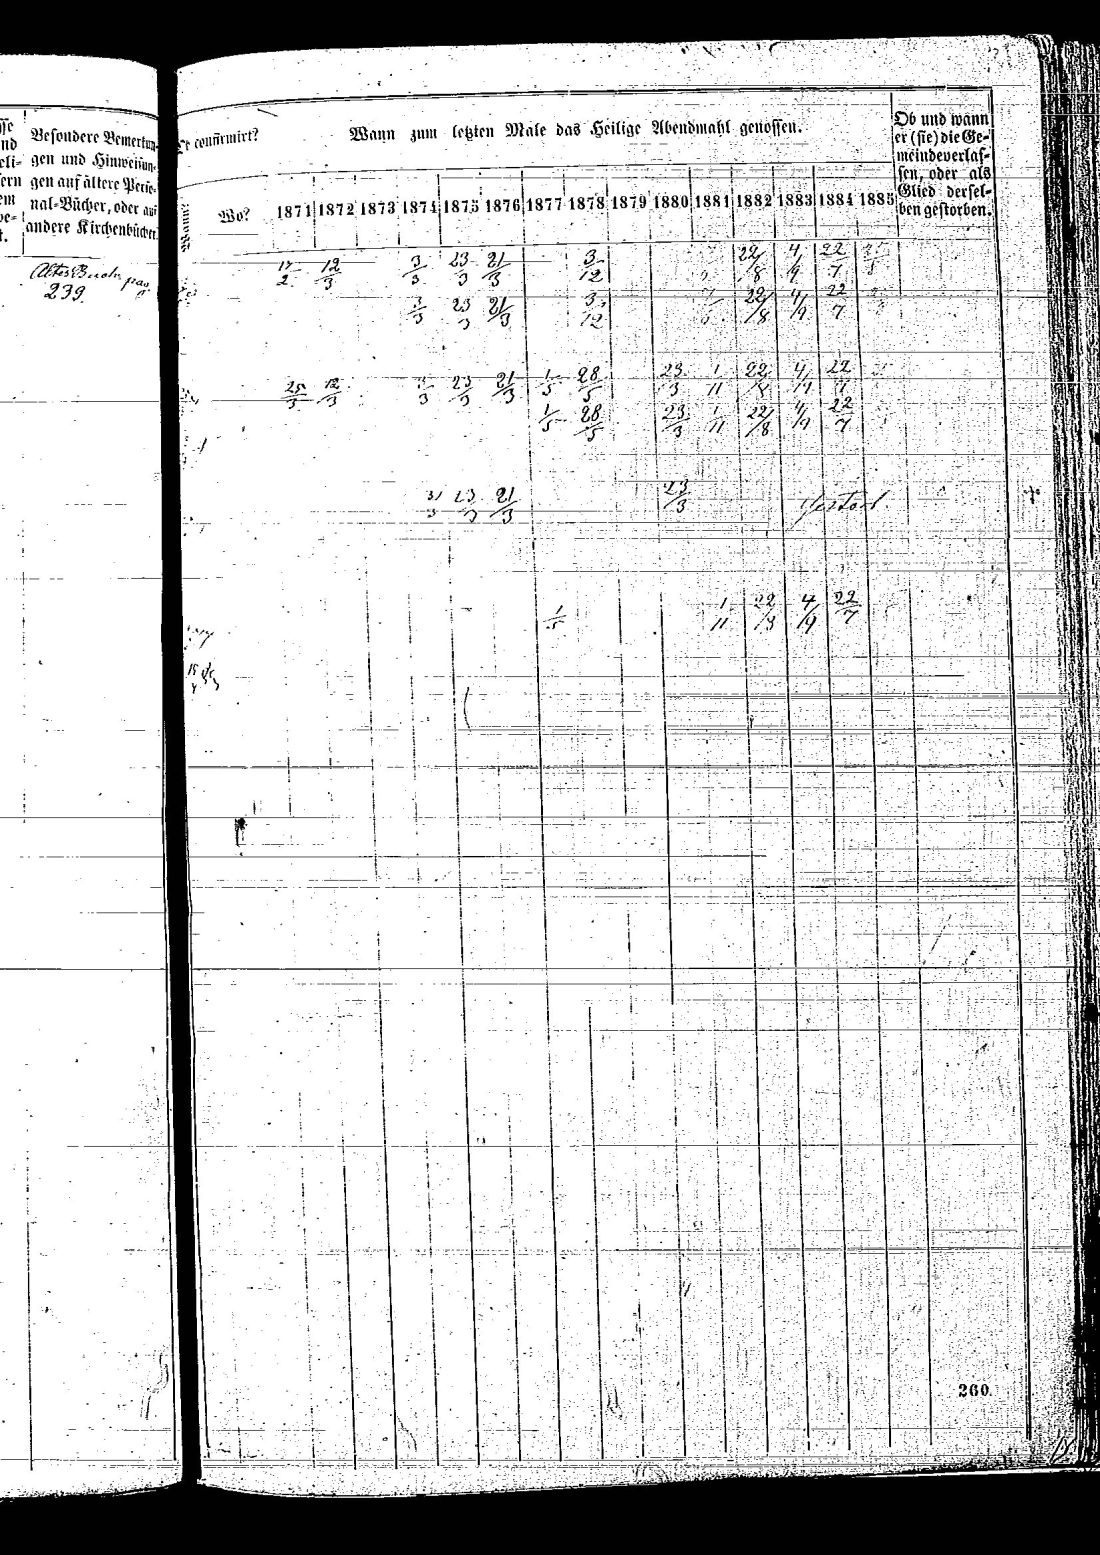 Besondere Bemerkun-
gen und Hinweisun-
gen auf ältere Perso-
nal-Bücher, oder auf
andere Kirchenbücher.
Altes Buch pag.
239.
confirmirt?
Wann zum letzten Male das Heilige Abendmahl genossen.
Ob und wann
er (sie) die Ge-
meinde verlas-
sen, oder als
Glied dersel-
ben gestorben.
Wo? 1871 1872 1873 1874 1875 1876 1877 1878 1879 1880 1881 1882 1883 1884 1885
17/2 12/3 3/3 23/3 21/3 3/12 22/8 4/9 22/7
3/3 23/3 21/3 3/12 22/8 4/9 22/7
25/3 12/3 3/3 23/3 21/3 1/5 28/5 23/3 1/11 22/8 4/9 22/7
1/5 28/5 23/3 1/11 22/8 4/9 22/7
3/3 23/3 21/3 23/3 gestorb.
1/5 1/11 22/8 4/9 22/7
260